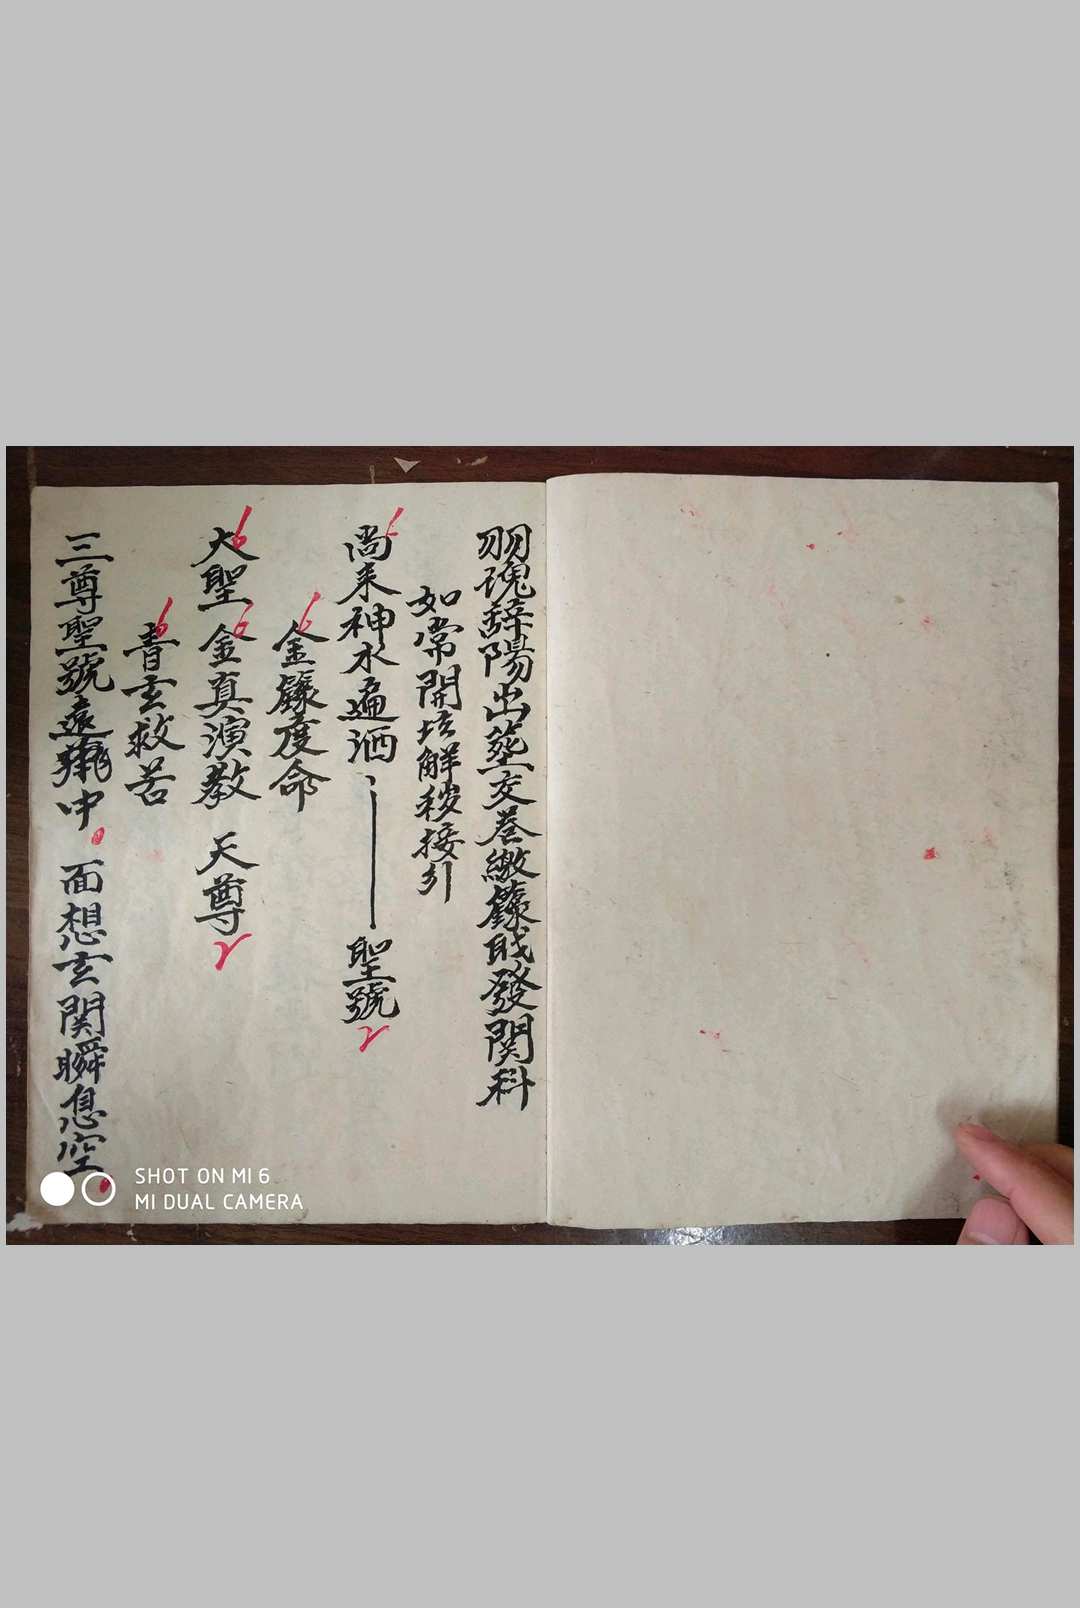 羽魂辭陽出墓交卷繳籙財發関科
如常開坛解穢接引
尚来神水遍洒 聖號
金籙度命
大聖 金真演教 天尊
青玄救苦
三尊聖號遠 中 面想玄関瞬息空
SHOT ON MI 6
MI DUAL CAMERA